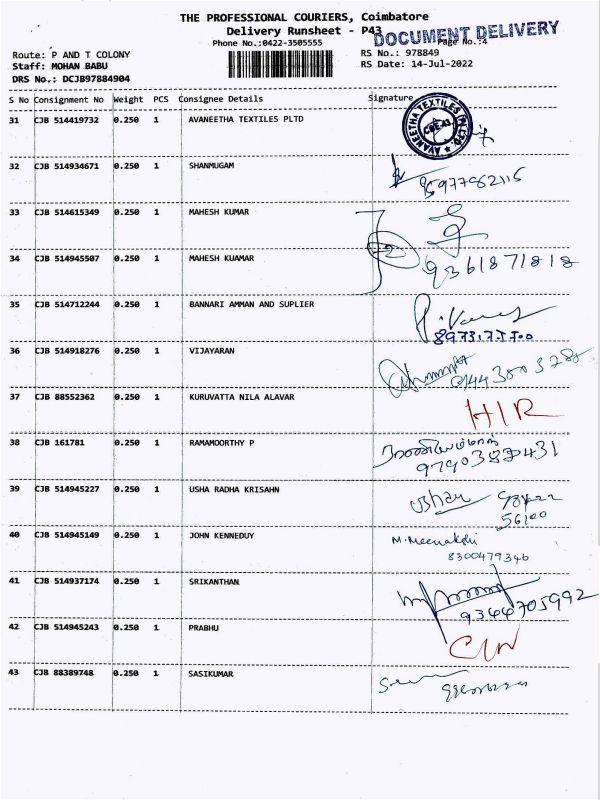 THE PROFESSIONAL COURIERS, Coimbatore
Delivery Runsheet - P43
DOCUMENT DELIVERY
Phone No.:0422-3505555
Page No.:4
Route: P AND T COLONY
RS No.: 978849
Staff: MOHAN BABU
RS Date: 14-Jul-2022
DRS No.: DCJB97884904
S No Consignment No Weight PCS Consignee Details Signature
31 CJB 514419732 0.250 1 AVANEETHA TEXTILES PLTD
AVANEETHA TEXTILES (P) LTD. CBE-43
32 CJB 514934671 0.250 1 SHANMUGAM
9597762115
33 CJB 514615349 0.250 1 MAHESH KUMAR
34 CJB 514945507 0.250 1 MAHESH KUAMAR
9361871818
35 CJB 514712244 0.250 1 BANNARI AMMAN AND SUPLIER
36 CJB 514918276 0.250 1 VIJAYARAN
37 CJB 88552362 0.250 1 KURUVATTA NILA ALAVAR
HIR
38 CJB 161781 0.250 1 RAMAMOORTHY P
39 CJB 514945227 0.250 1 USHA RADHA KRISAHN
40 CJB 514945149 0.250 1 JOHN KENNEDUY
M. Meenakshi
8300479346
41 CJB 514937174 0.250 1 SRIKANTHAN
9344705992
42 CJB 514945243 0.250 1 PRABHU
43 CJB 88389748 0.250 1 SASIKUMAR